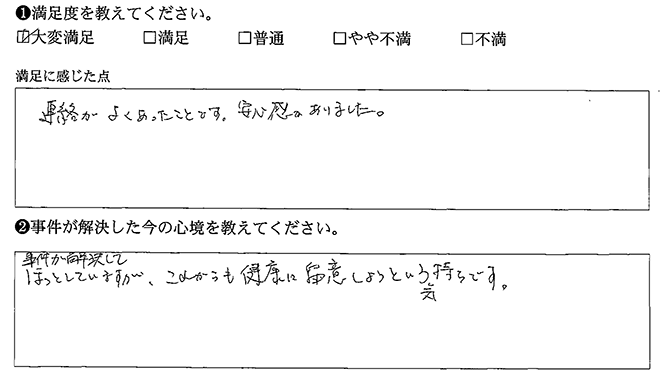 ❶満足度を教えてください。
☑大変満足 □満足 □普通 □やや不満 □不満
満足に感じた点
連絡がよくあったことです。安心感がありました。
❷事件が解決した今の心境を教えてください。
事件が解決して
ほっとしていますが、これからも健康に留意しようという気持ちです。